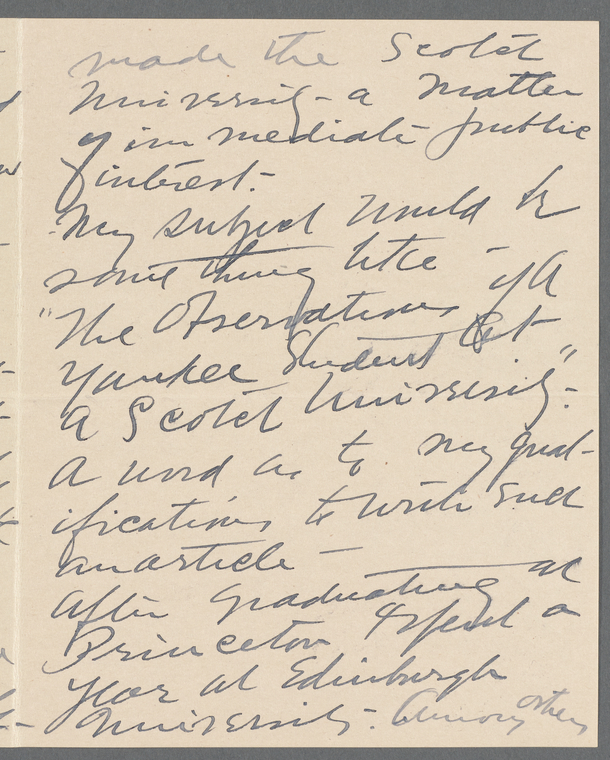 made the Scotch
University - a matter
of immediate public
interest. -
My subject would be
something like -
"The Observations of A
Yankee Student At
A Scotch University" -
A word as to my qual-
ifications to write such
an article -
After graduating at
Princeton I spent a
year at Edinburgh
University. Among others